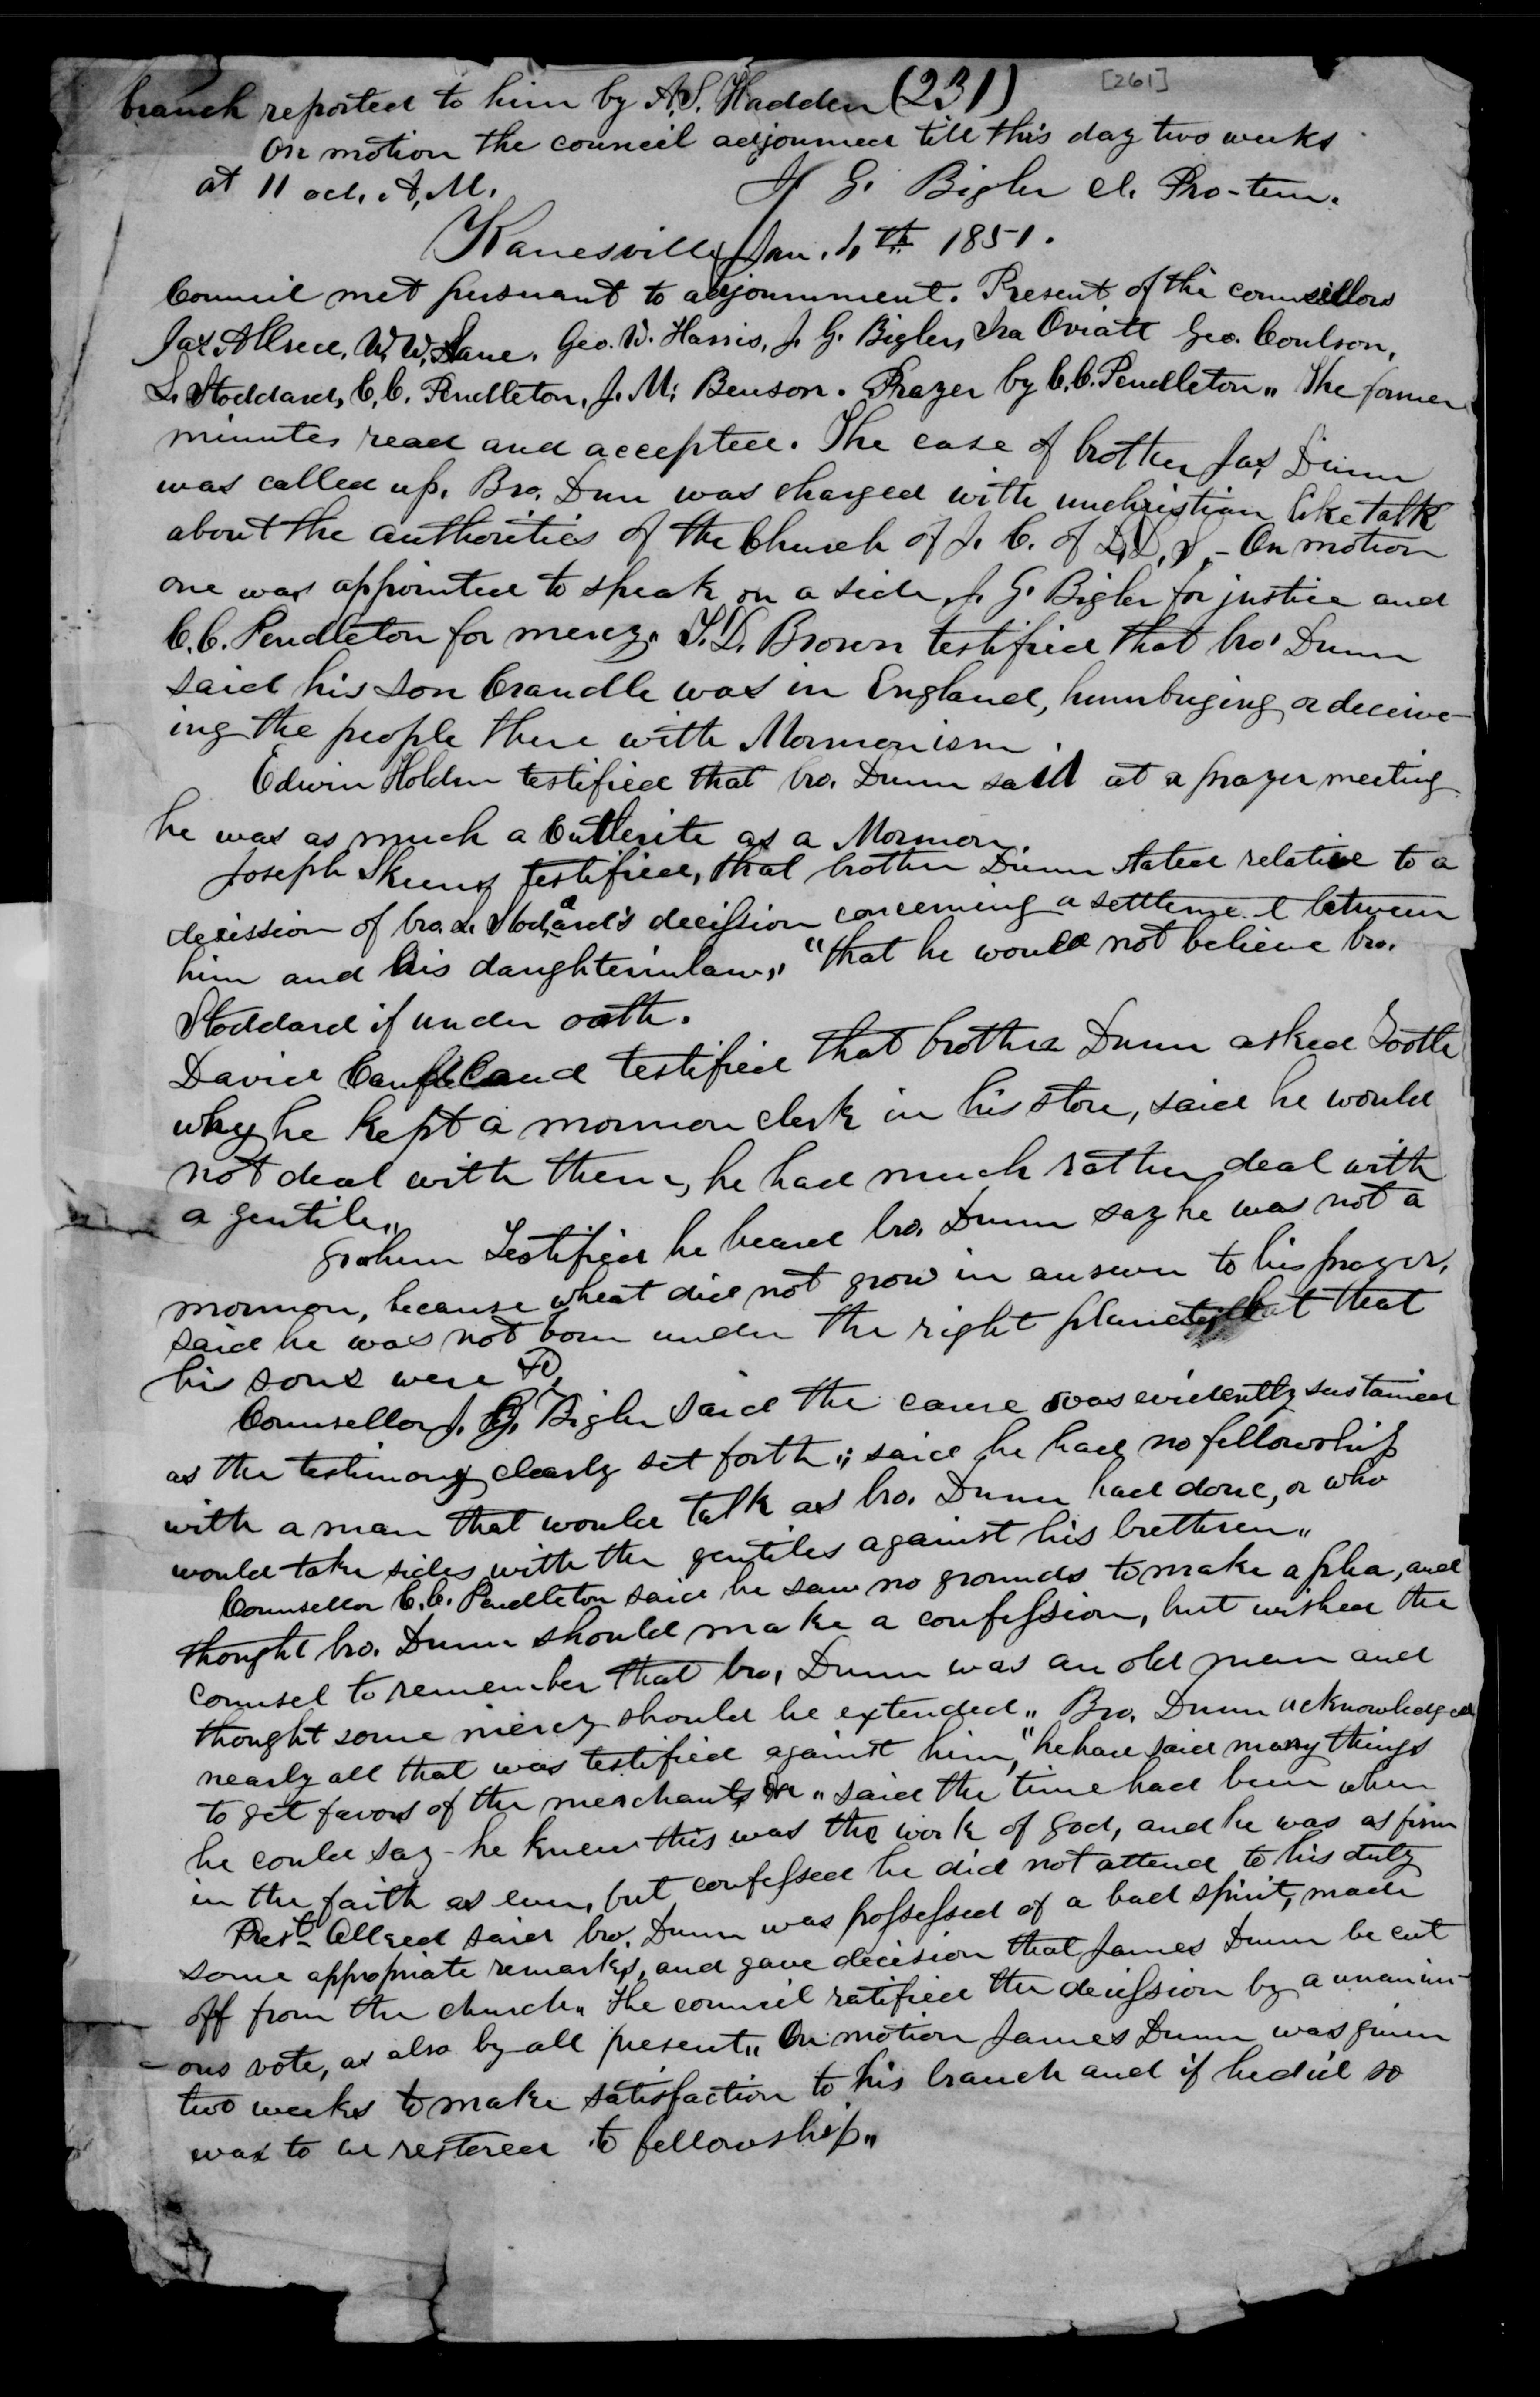 [261]
branch reported to him by A. S. Hadden (231)
On motion the council adjourned till this day two weeks
at 11 ocl. A, M. J G. Bigler cl. Pro-tem.
Kanesville Jan. 4th 1851.
Council met pursuant to adjournment. Present of the counsellors
Jas. Allred, W, W, Lane, Geo. W. Harris, J. G. Bigler, Ira Oviatt Geo. Coulson,
L. Stoddard, C, C. Pendleton, J. M. Benson. Prayer by C. C. Pendleton,, The former
minutes read and accepted. The case of brother Jas Dunn
was called up. Bro. Dun was charged with unchristian like talk
about the authorities of the Church of J. C. of L, D, S, - On motion
one was appointed to speak on a side, J. G. Bigler for justice and
C. C. Pendleton for mercy,, T. D. Brown testified that bro. Dunn
said his son Crandle was in England, humbuging or deceive-
ing the people there with Mormonism.
Edwin Holden testified that bro. Dunn said at a prayer meeting
he was as much a Cutlerite as a Mormon.
Joseph Skeens testified, that brother Dunn stated relative to a
decission of bro. L. Stodard's decission concerning a settleme t between
him and his daughterinlaw,, "that he would not believe bro.
Stoddard if under oath.
David testified that brother Dunn asked Tootle
why he kept a mormon clerk in his store, said he would
not deal with them, he had much rather deal with
a gentile,,
Grahum Testified he heard bro. Dunn say he was not a
mormon, because wheat did not grow in answer to his prayer,
said he was not born under the right planet, but that
his sons were
Counsellor J. G. Bigler said the cause was evidently sustained
as the testimony clearly set forth,, said he had no fellowship
with a man that would talk as bro. Dunn had done, or who
would take sides with the gentiles against his bretheren,,
Counsellor C. C. Pendleton said he saw no grounds to make a plea, and
thought bro. Dunn should make a confession, but wished the
counsel to remember that bro, Dunn was an old man and
thought some mercy should be extended,, Bro. Dunn acknowledged
nearly all that was testified against him, "he had said many things
to get favors of the merchants,, said the time had been when
he could say - he knew this was the work of God, and he was as firm
in the faith as ever, but confessed he did not attend to his duty
Prest- Allred said bro. Dunn was possessed of a bad spirit, made
some appropriate remarks, and gave decision that James Dunn be cut
off from the church,, The council ratified the decission by a unanim-
ous vote, as also by all present,, On motion James Dunn was given
two weeks to make satisfaction to his branch and if he did so
was to be restored to fellowship,,